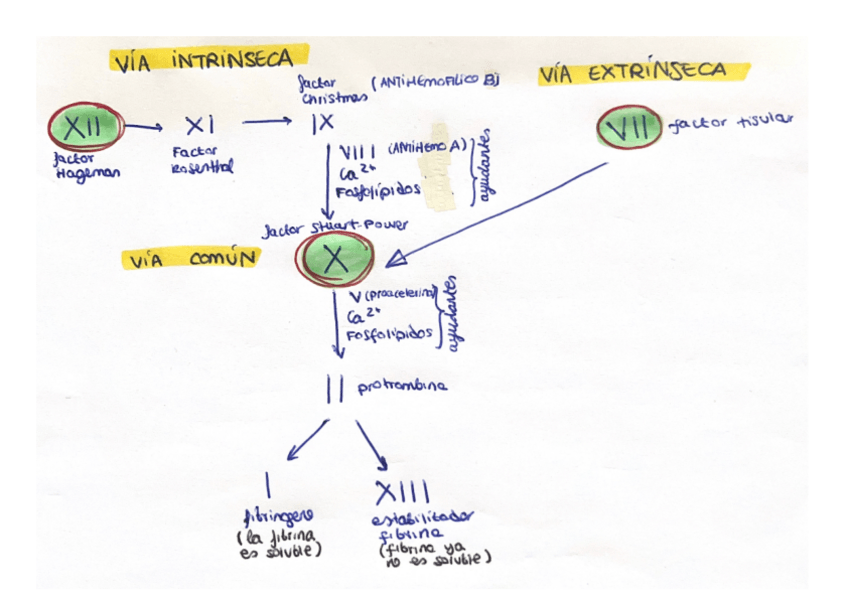 VÍA INTRÍNSECA
VÍA EXTRÍNSECA
factor (ANTIHEMOFILICO B)
christmas
XII
XI
IX
VII
factor tisular
factor
Hageman
Factor
Rosenthal
VIII (ANTIHEMO A)
Ca2+
Fosfolípidos
ayudantes
factor Stuart-Power
VIA COMÚN
X
V (proacelerina)
Ca2+
Fosfolípidos
ayudantes
II protrombina
I
XIII
fibringero
(la fibrina
es soluble)
estabilitador
fibrina
(fibrina ya
no es soluble)